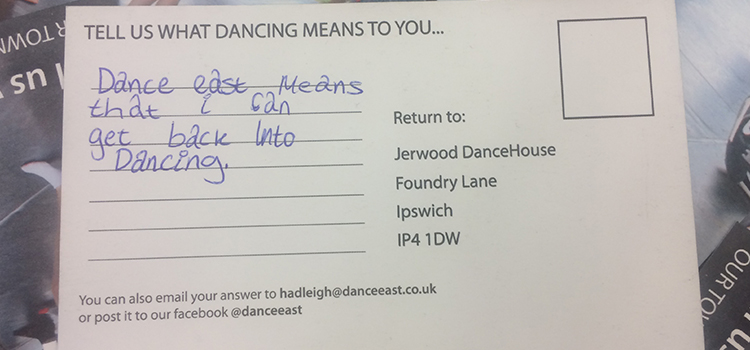 TELL US WHAT DANCING MEANS TO YOU...
Dance east Means
that i can
get back Into
Dancing.
Return to:
Jerwood DanceHouse
Foundry Lane
Ipswich
IP4 1DW
You can also email your answer to hadleigh@danceeast.co.uk
or post it to our facebook @danceeast
OUR TOW